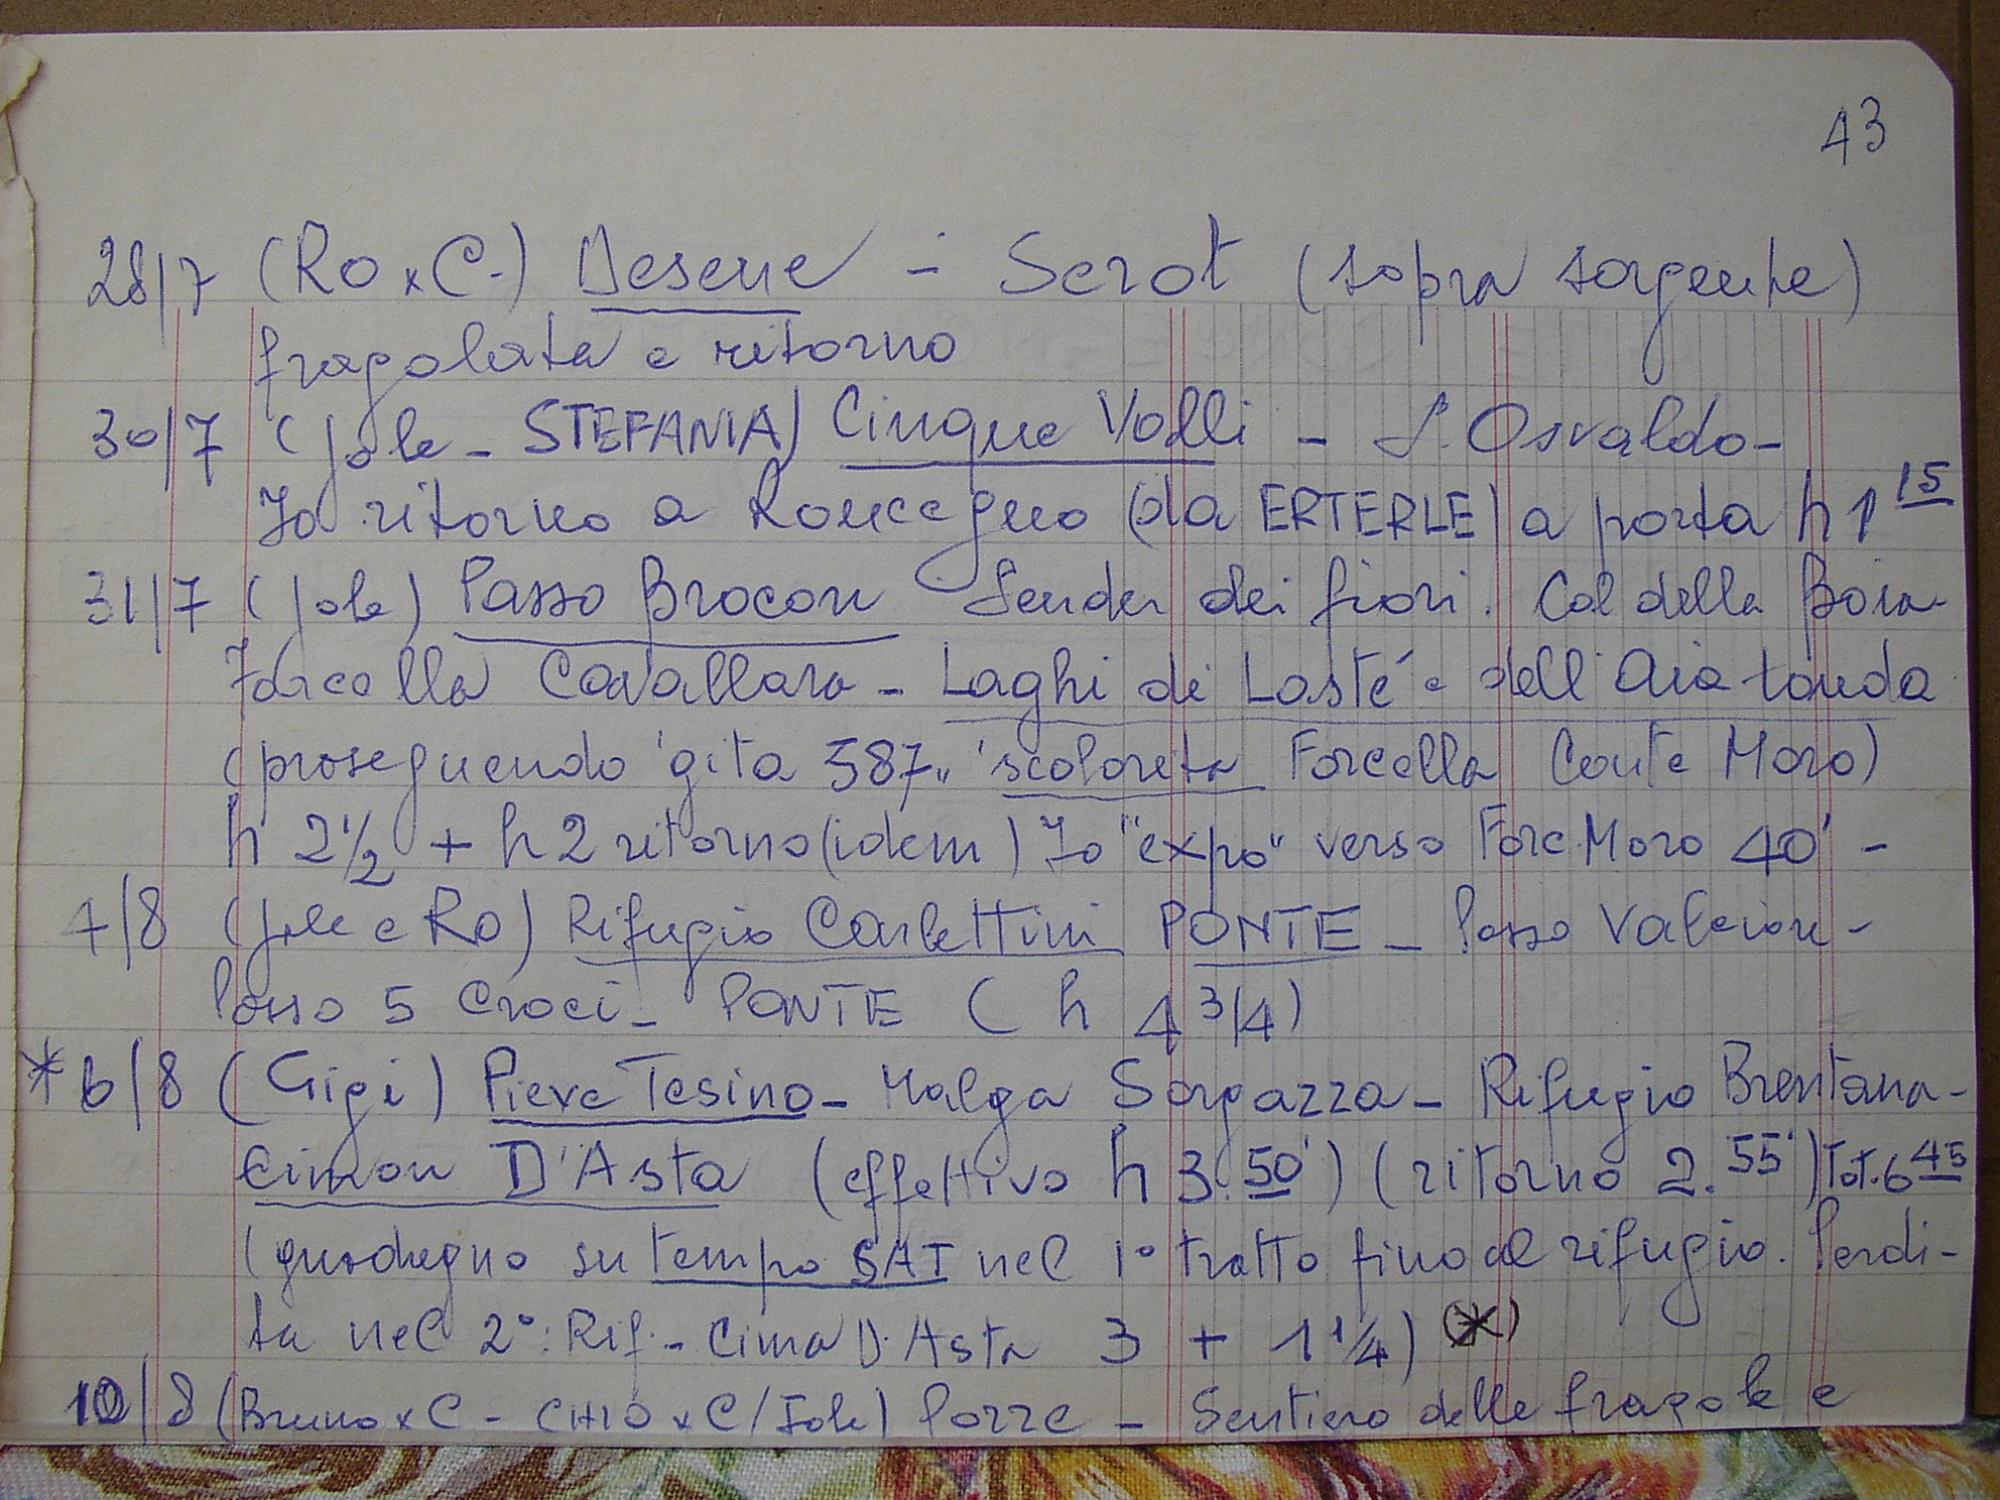 43
28/7 (Ro x C.) Desene - Serot (sopra sorgente)
fragolata e ritorno
30/7 (Jole - STEFANIA) Cinque Valli - S. Osvaldo -
Io ritorno a Roncegno (da ERTERLE) a porta h 1 15
31/7 (Jole) Passo Brocon Sender dei fiori. Col della Boia
Forcella Cavallara - Laghi di Lasté e dell'Aia tonda
(proseguendo gita 587,, Forcella Conte Moro)
h 2 1/2 + h 2 ritorno (idem) Io "expo" verso Forc. Moro 40' -
4/8 (Jole e Ro) Rifugio Carlettini PONTE - Passo Valcion -
Passo 5 Croci - PONTE (h 4 3/4)
* 6/8 (Gigi) Pieve Tesino - Malga Sorgazza - Rifugio Brentana -
Cimon D'Asta (effettivo h 3.50') (ritorno 2.55') Tot. 6 45
(guadagno su tempo SAT nel 1° tratto fino al rifugio. Perdi-
ta nel 2°: Rif. - Cima D'Asta 3 + 1 1/4) (*)
10/8 (Bruno x C - CHIO x C / Jole) Pozze - Sentiero delle fragole e